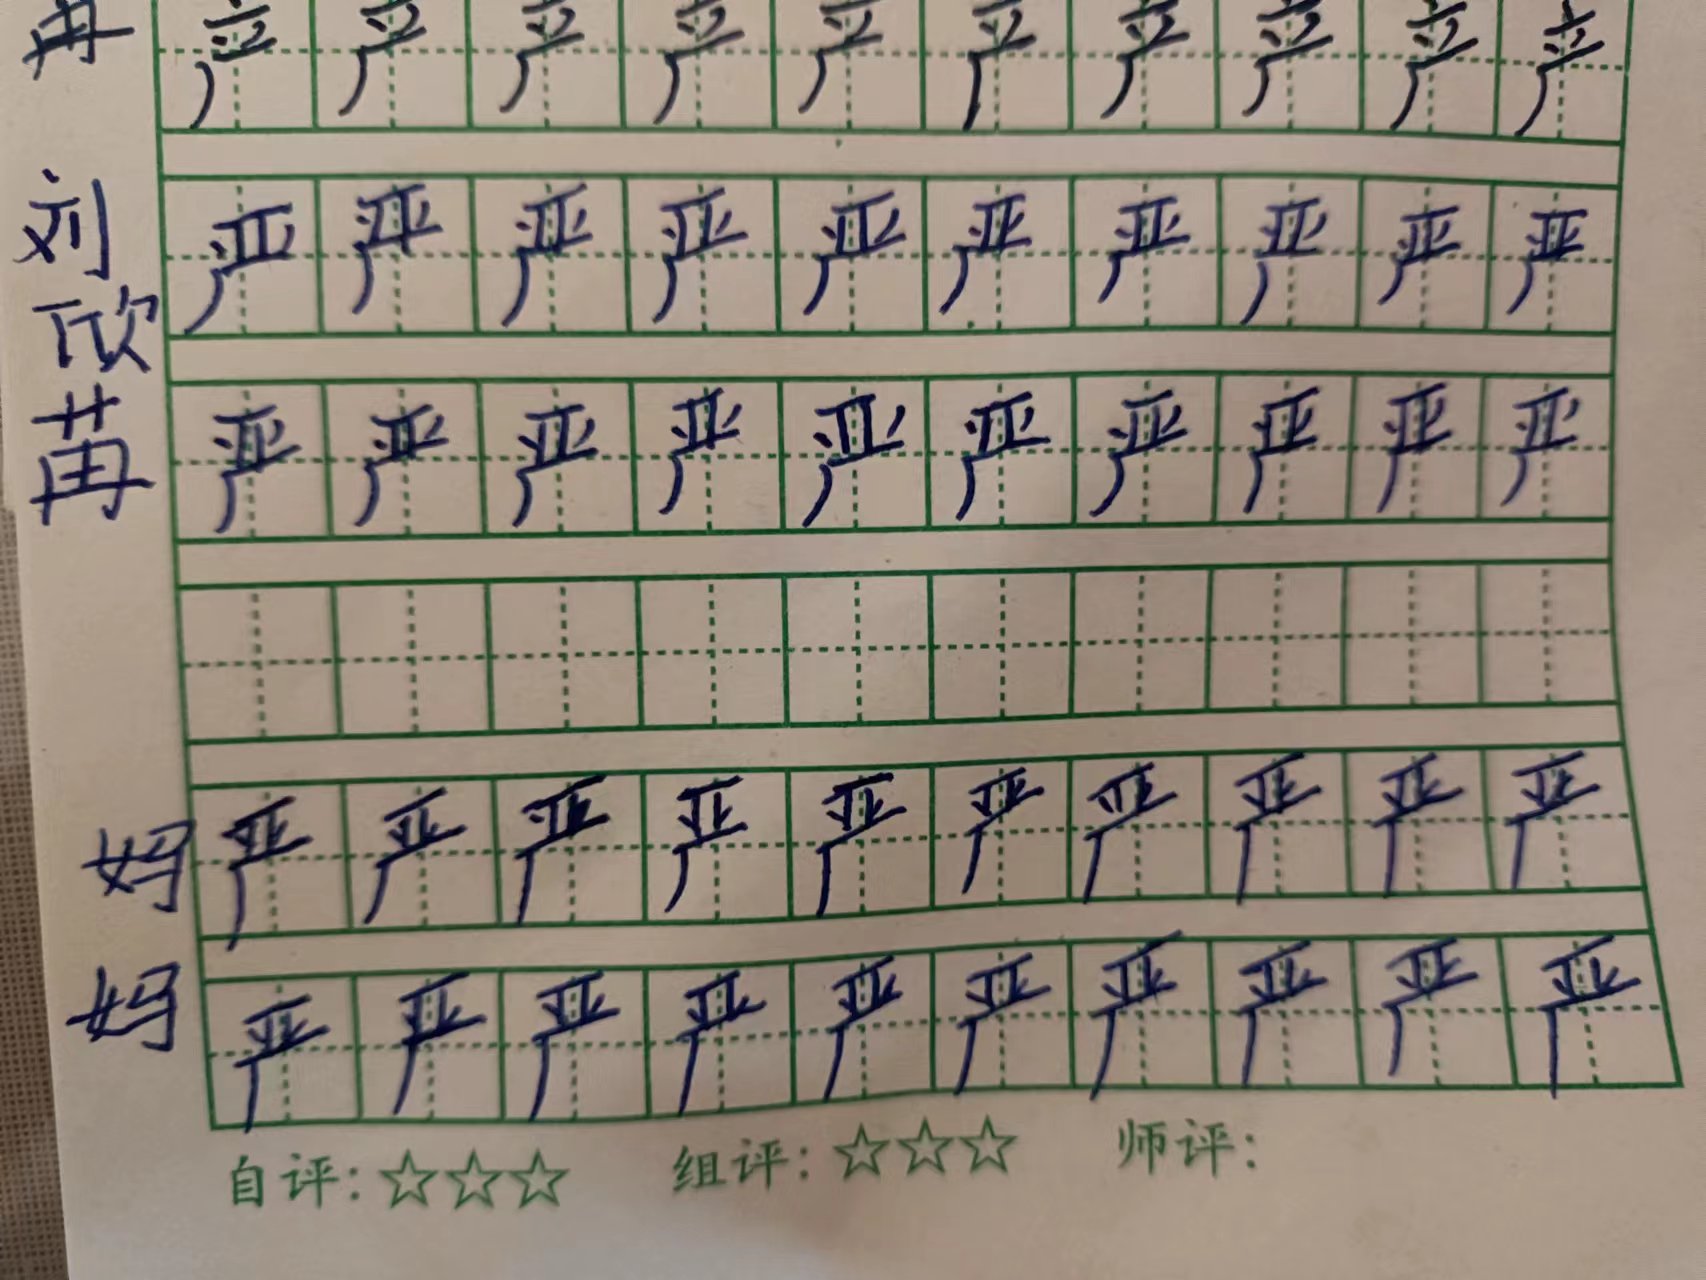 冉 严 严 严 严 严 严 严 严 严 严
刘欣苒
严 严 严 严 严 严 严 严 严 严
严 严 严 严 严 严 严 严 严 严
妈 严 严 严 严 严 严 严 严 严 严
妈 严 严 严 严 严 严 严 严 严 严
自评:☆☆☆ 组评:☆☆☆ 师评: